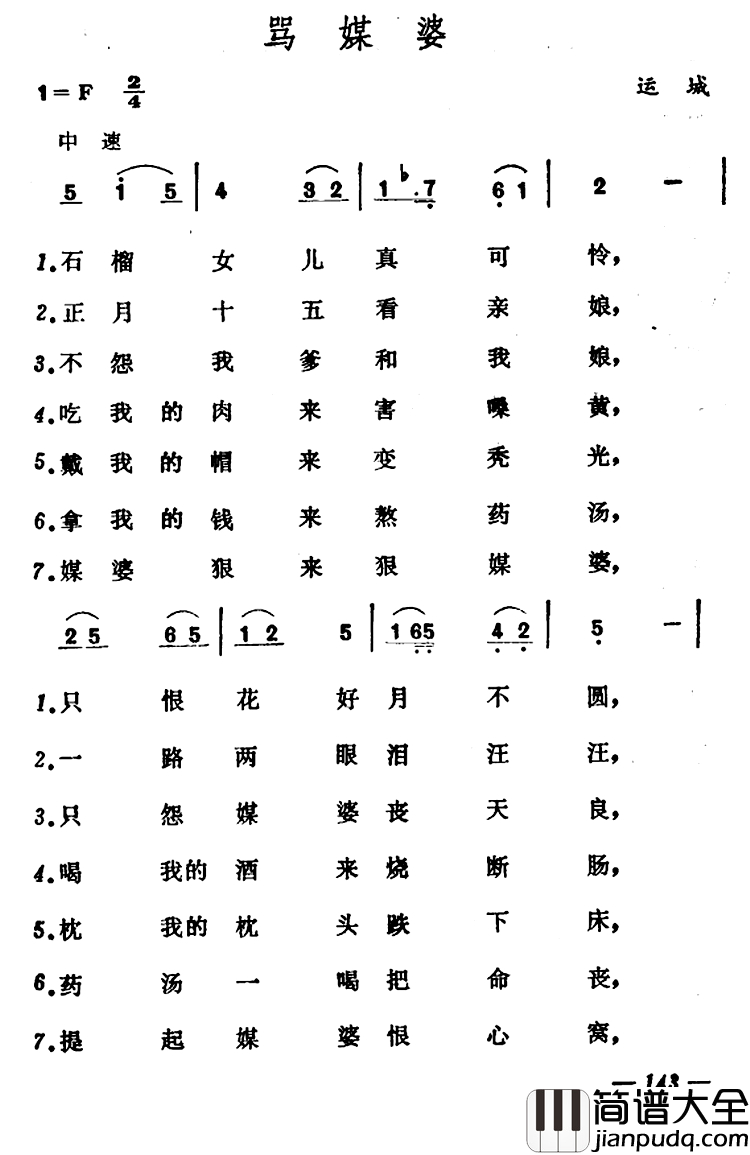 骂媒婆
1=F 2/4 运城
中速
5 i 5 | 4 3 2 | 1 ♭7 6 1 | 2 — |
1.石榴女儿真可怜，
2.正月十五看亲娘，
3.不怨我爹和我娘，
4.吃我的肉来害嗓黄，
5.戴我的帽来变秃光，
6.拿我的钱来熬药汤，
7.媒婆狠来狠媒婆，
2 5 6 5 | 1 2 5 | 1 6 5 4 2 | 5 — |
1.只恨花好月不圆，
2.一路两眼泪汪汪，
3.只怨媒婆丧天良，
4.喝我的酒来烧断肠，
5.枕我的枕头跌下床，
6.药汤一喝把命丧，
7.提起媒婆恨心窝，
— 143 —
简谱大全
jianpudq.com